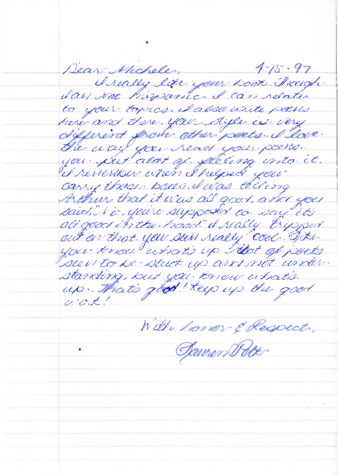 Dear Michele, 4-15-97
I really like your book. Though
I am not hispanic I can relate
to your topics. I also write poems
here and there. Your style is very
different from other poets. I love
the way you read your poems
you put alot of feeling into it.
I remember when I helped you
carry these boxes. I was telling
Arthur that it was all good and you
said, "No, you're supposed to say it's
all good in the hood" I really tripped
out on that. You seem really cool. Like
you know what's up. of poets
seem to be stuck up and not under-
standing, but you know what's
up. That's good! Keep up the good
work!
With Honor & Respect,
Lauren